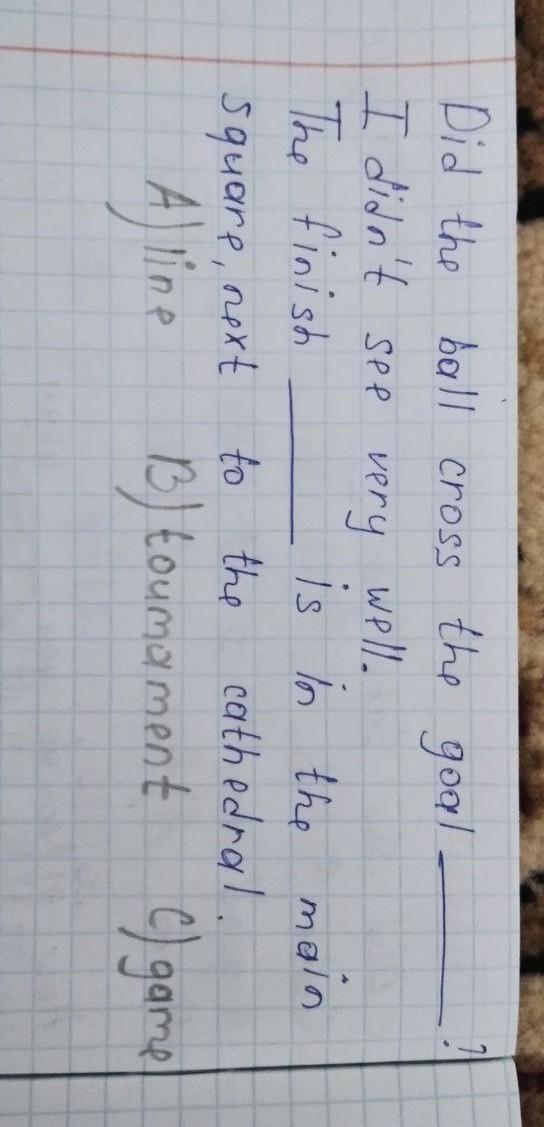 Did the ball cross the goal ______?
I didn't see very well.
The finish ______ is in the main
square, next to the cathedral.
A) line B) toumament C) game